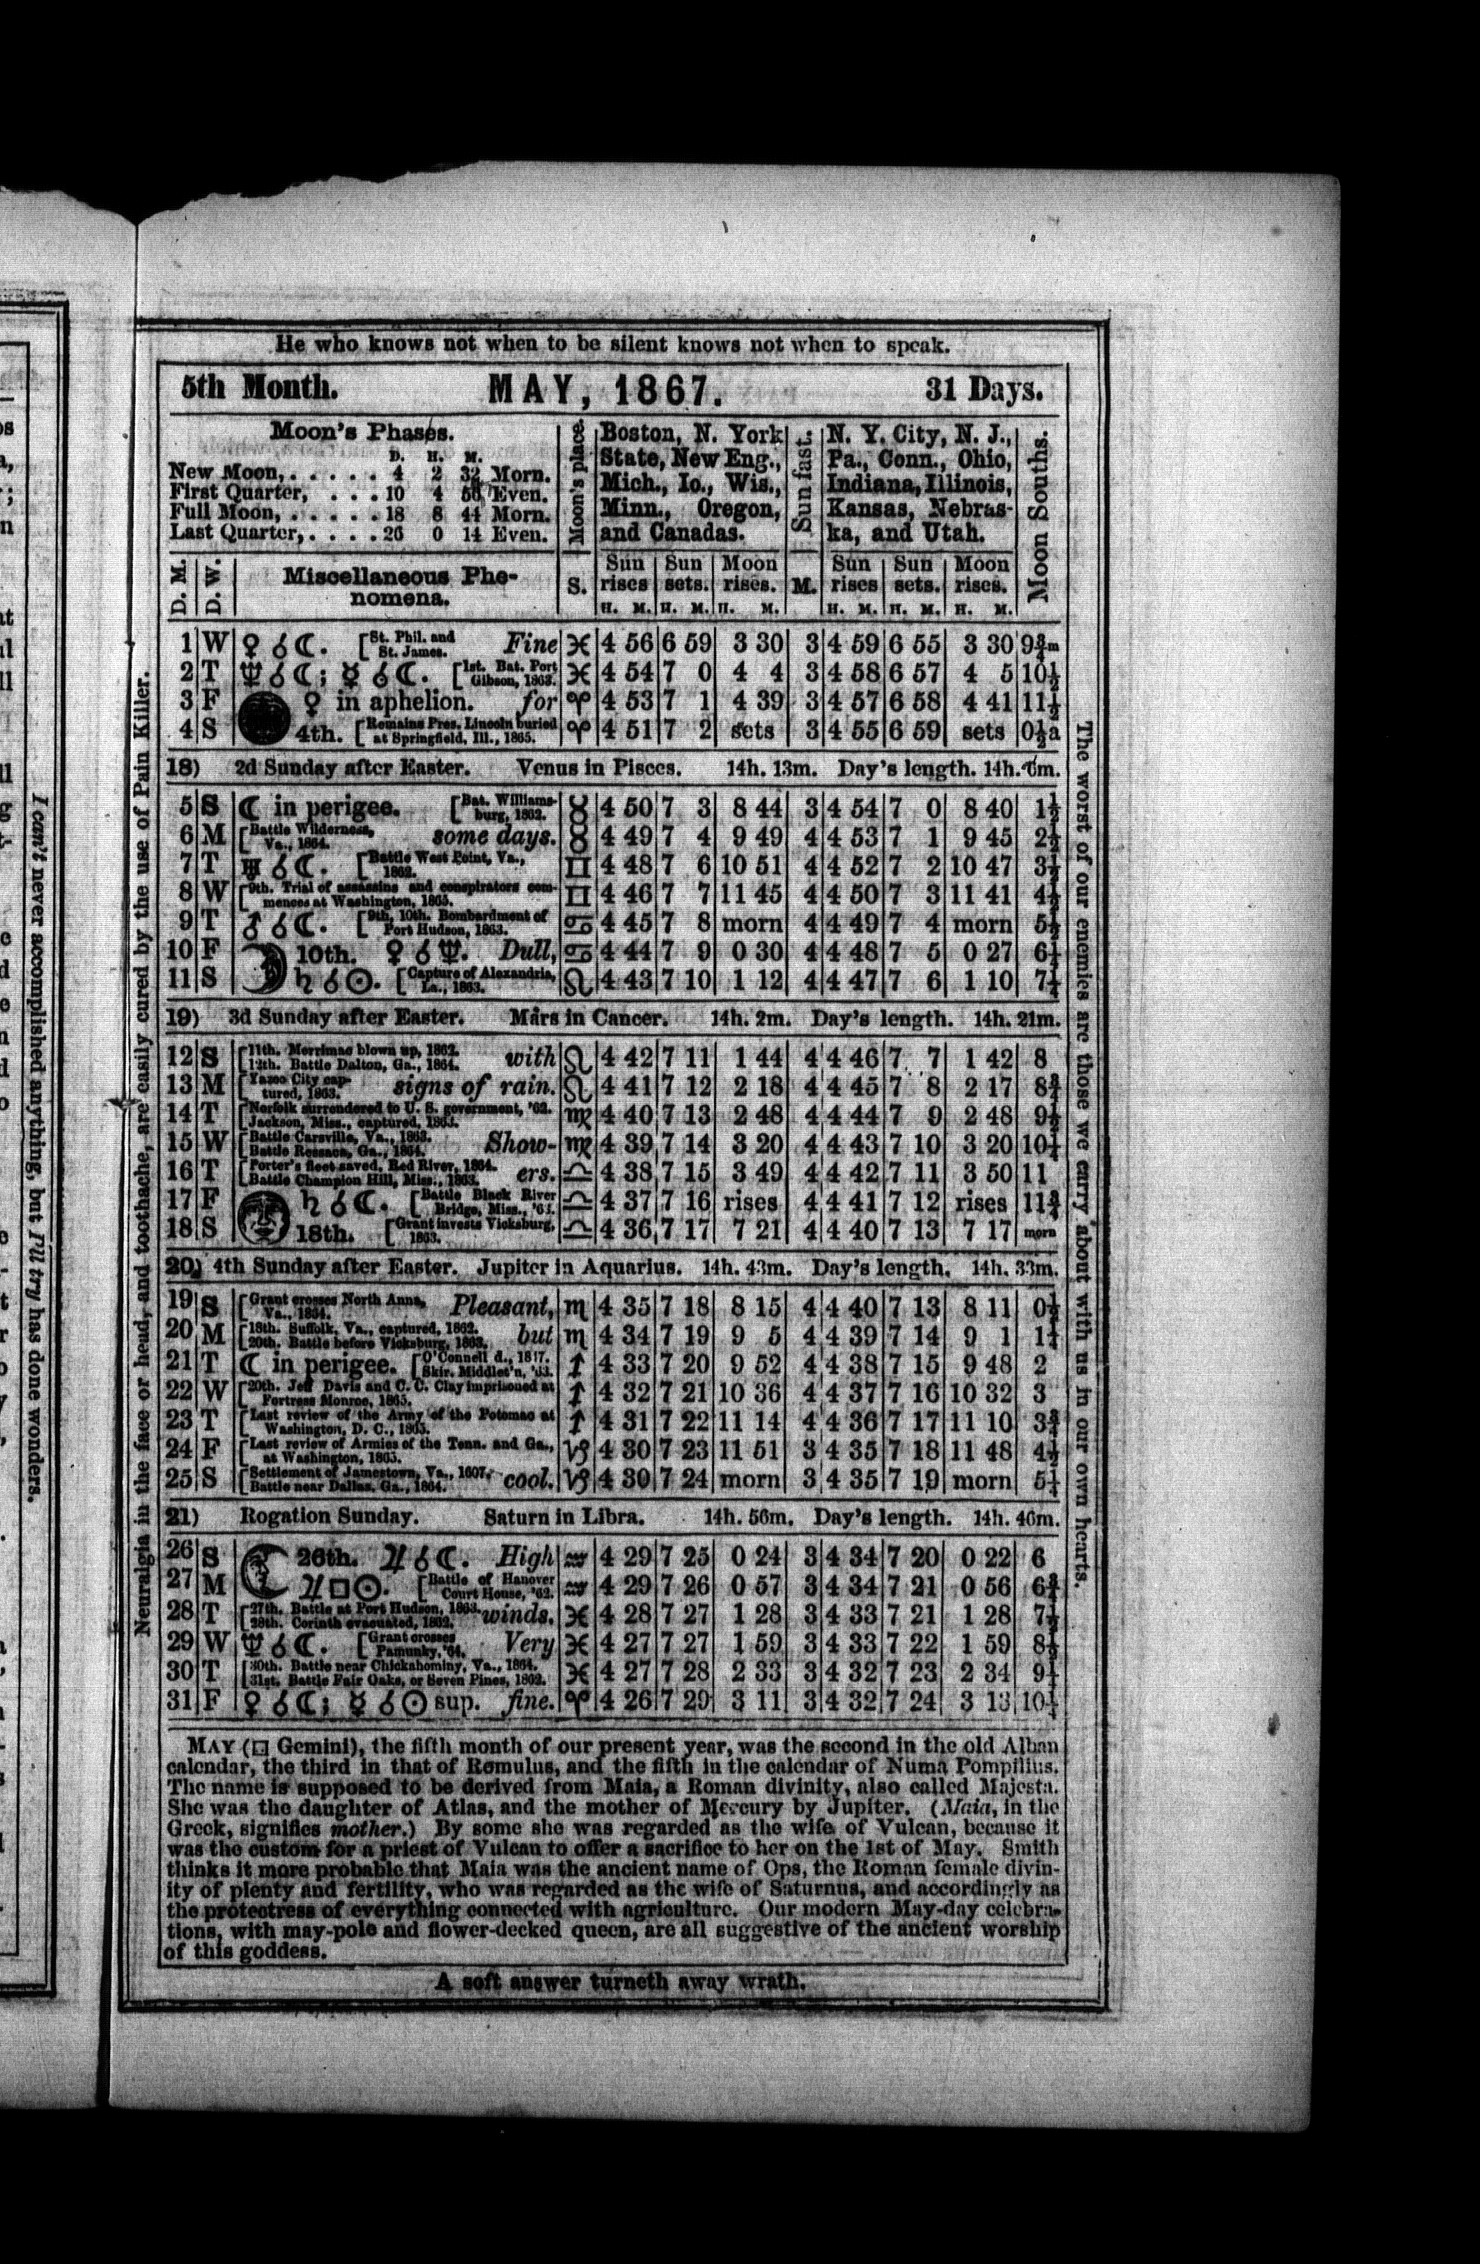 He who knows not when to be silent knows not when to speak.
5th Month. MAY, 1867. 31 Days.
Moon's Phases.
D. H. M.
New Moon, . . . . . . 4 2 32 Morn.
First Quarter, . . . 10 4 56 Even.
Full Moon, . . . . . 18 8 44 Morn.
Last Quarter, . . . . 26 0 14 Even.
Moon's place.
Boston, N. York
State, New Eng.,
Mich., Io., Wis.,
Minn., Oregon,
and Canadas.
Sun fast.
N. Y. City, N. J.,
Pa., Conn., Ohio,
Indiana, Illinois,
Kansas, Nebras-
ka, and Utah.
Moon Souths.
D. M. D. W. Miscellaneous Phe-
nomena.
S. Sun rises Sun sets. Moon rises. M. Sun rises Sun sets. Moon rises.
H. M. H. M. H. M. H. M. H. M. H. M.
1 W ♀ ☌ ☾. [St. Phil. and St. James. Fine ♓ 4 56 6 59 3 30 3 4 59 6 55 3 30 9¾m
2 T ♆ ☌ ☾; ☿ ☌ ☾. [1st. Bat. Port Gibson, 1863. ♓ 4 54 7 0 4 4 3 4 58 6 57 4 5 10½
3 F ♀ in aphelion. for ♈ 4 53 7 1 4 39 3 4 57 6 58 4 41 11½
4 S 4th. [Remains Pres. Lincoln buried at Springfield, Ill., 1865. ♈ 4 51 7 2 sets 3 4 55 6 59 sets 0½a
18) 2d Sunday after Easter. Venus in Pisces. 14h. 13m. Day's length. 14h. 6m.
5 S ☾ in perigee. [Bat. Williamsburg, 1862. ♉ 4 50 7 3 8 44 3 4 54 7 0 8 40 1½
6 M [Battle Wilderness, Va., 1864. some days. ♉ 4 49 7 4 9 49 4 4 53 7 1 9 45 2½
7 T ♅ ☌ ☾. [Battle West Point, Va., 1862. ♊ 4 48 7 6 10 51 4 4 52 7 2 10 47 3½
8 W [9th. Trial of assassins and conspirators commences at Washington, 1865. ♊ 4 46 7 7 11 45 4 4 50 7 3 11 41 4½
9 T ♂ ☌ ☾. [9th, 10th. Bombardment of Port Hudson, 1863. ♋ 4 45 7 8 morn 4 4 49 7 4 morn 5½
10 F 10th. ♀ ☌ ♆. Dull, ♋ 4 44 7 9 0 30 4 4 48 7 5 0 27 6½
11 S ♄ ☌ ☉. [Capture of Alexandria, La., 1863. ♌ 4 43 7 10 1 12 4 4 47 7 6 1 10 7¼
19) 3d Sunday after Easter. Mars in Cancer. 14h. 2m. Day's length. 14h. 21m.
12 S [11th. Merrimac blown up, 1862. 12th. Battle Dalton, Ga., 1864. with ♌ 4 42 7 11 1 44 4 4 46 7 7 1 42 8
13 M [Yazoo City captured, 1863. signs of rain. ♌ 4 41 7 12 2 18 4 4 45 7 8 2 17 8¾
14 T [Norfolk surrendered to U. S. government, '62. Jackson, Miss., captured, 1863. ♍ 4 40 7 13 2 48 4 4 44 7 9 2 48 9½
15 W [Battle Carsville, Va., 1863. Battle Resaca, Ga., 1864. Show- ♍ 4 39 7 14 3 20 4 4 43 7 10 3 20 10¼
16 T [Porter's fleet saved, Red River, 1864. Battle Champion Hill, Miss., 1863. ers. ♎ 4 38 7 15 3 49 4 4 42 7 11 3 50 11
17 F ♄ ☌ ☾. [Battle Black River Bridge, Miss., '63. ♎ 4 37 7 16 rises 4 4 41 7 12 rises 11¾
18 S 18th. [Grant invests Vicksburg, 1863. ♎ 4 36 7 17 7 21 4 4 40 7 13 7 17 morn
20) 4th Sunday after Easter. Jupiter in Aquarius. 14h. 43m. Day's length. 14h. 33m.
19 S [Grant crosses North Anna, Va., 1864. Pleasant, ♏ 4 35 7 18 8 15 4 4 40 7 13 8 11 0½
20 M [18th. Suffolk, Va., captured, 1862. 20th. Battle before Vicksburg, 1863. but ♏ 4 34 7 19 9 5 4 4 39 7 14 9 1 1¼
21 T ☾ in perigee. [O'Connell d., 1847. Skir. Middlet'n, '63. ♐ 4 33 7 20 9 52 4 4 38 7 15 9 48 2
22 W [20th. Jeff Davis and C. C. Clay imprisoned at Fortress Monroe, 1865. ♐ 4 32 7 21 10 36 4 4 37 7 16 10 32 3
23 T [Last review of the Army of the Potomac at Washington, D. C., 1865. ♐ 4 31 7 22 11 14 4 4 36 7 17 11 10 3¾
24 F [Last review of Armies of the Tenn. and Ga., at Washington, 1865. ♑ 4 30 7 23 11 51 3 4 35 7 18 11 48 4½
25 S [Settlement of Jamestown, Va., 1607. Battle near Dallas, Ga., 1864. cool. ♑ 4 30 7 24 morn 3 4 35 7 19 morn 5¼
21) Rogation Sunday. Saturn in Libra. 14h. 56m. Day's length. 14h. 46m.
26 S 26th. ♃ ☌ ☾. High ♒ 4 29 7 25 0 24 3 4 34 7 20 0 22 6
27 M ♃ □ ☉. [Battle of Hanover Court House, '62. ♒ 4 29 7 26 0 57 3 4 34 7 21 0 56 6¾
28 T [27th. Battle at Port Hudson, 1863. 28th. Corinth evacuated, 1862. winds. ♓ 4 28 7 27 1 28 3 4 33 7 21 1 28 7½
29 W ♆ ☌ ☾. [Grant crosses Pamunky, '64. Very ♓ 4 27 7 27 1 59 3 4 33 7 22 1 59 8½
30 T [30th. Battle near Chickahominy, Va., 1864. 31st. Battle Fair Oaks, or Seven Pines, 1862. ♓ 4 27 7 28 2 33 3 4 32 7 23 2 34 9¼
31 F ♀ ☌ ☾; ☿ ☌ ☉ sup. fine. ♈ 4 26 7 29 3 11 3 4 32 7 24 3 13 10¼
MAY (□ Gemini), the fifth month of our present year, was the second in the old Alban
calendar, the third in that of Romulus, and the fifth in the calendar of Numa Pompilius.
The name is supposed to be derived from Maia, a Roman divinity, also called Majesta.
She was the daughter of Atlas, and the mother of Mercury by Jupiter. (Maia, in the
Greek, signifies mother.) By some she was regarded as the wife of Vulcan, because it
was the custom for a priest of Vulcan to offer a sacrifice to her on the 1st of May. Smith
thinks it more probable that Maia was the ancient name of Ops, the Roman female divin-
ity of plenty and fertility, who was regarded as the wife of Saturnus, and accordingly as
the protectress of everything connected with agriculture. Our modern May-day celebra-
tions, with may-pole and flower-decked queen, are all suggestive of the ancient worship
of this goddess.
A soft answer turneth away wrath.
Neuralgia in the face or head, and toothache, are easily cured by the use of Pain Killer.
The worst of our enemies are those we carry about with us in our own hearts.
I can't never accomplished anything, but I'll try has done wonders.